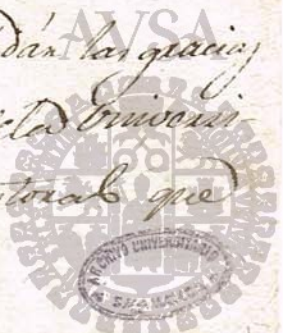 AVSA
dán las gracias
de la Universi-
torals que
ARCHIVO UNIVERSITARIO
SALAMANCA